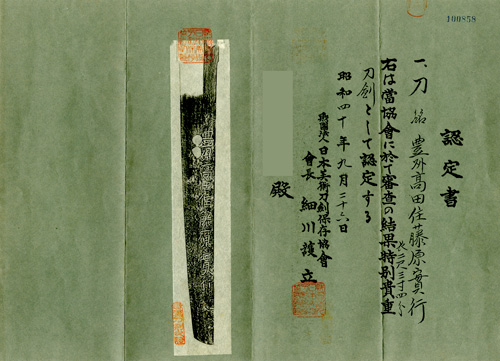 100858
認定書
一、刀 銘 豊州高田住藤原實行
長二尺三寸四分
右は當協會に於て審査の結果特別貴重
刀劍として認定する
昭和四十年九月二十六日
財團法人日本美術刀劍保存協會
會長 細川護立
殿